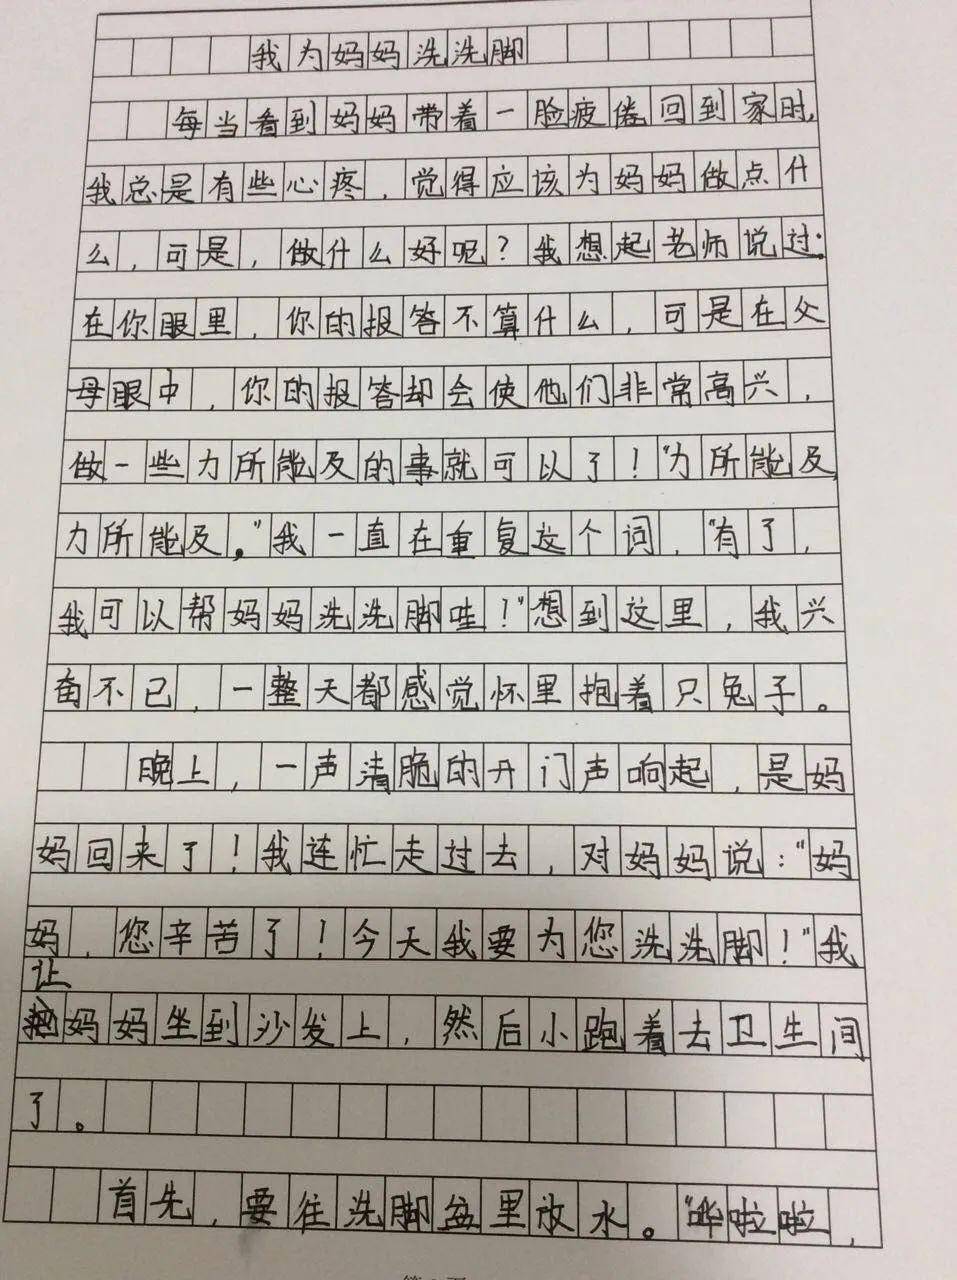 我为妈妈洗洗脚
每当看到妈妈带着一脸疲倦回到家时,
我总是有些心疼，觉得应该为妈妈做点什
么，可是，做什么好呢？我想起老师说过：
在你眼里，你的报答不算什么，可是在父
母眼中，你的报答却会使他们非常高兴，
做一些力所能及的事就可以了！“力所能及,
力所能及。”我一直在重复这个词，“有了，
我可以帮妈妈洗洗脚哇！”想到这里，我兴
奋不已，一整天都感觉怀里抱着只兔子。
晚上，一声清脆的开门声响起，是妈
妈回来了！我连忙走过去，对妈妈说：“妈
妈，您辛苦了！今天我要为您洗洗脚！”我
让
妈妈坐到沙发上，然后小跑着去卫生间
了。
首先，要往洗脚盆里放水。“哗啦啦，